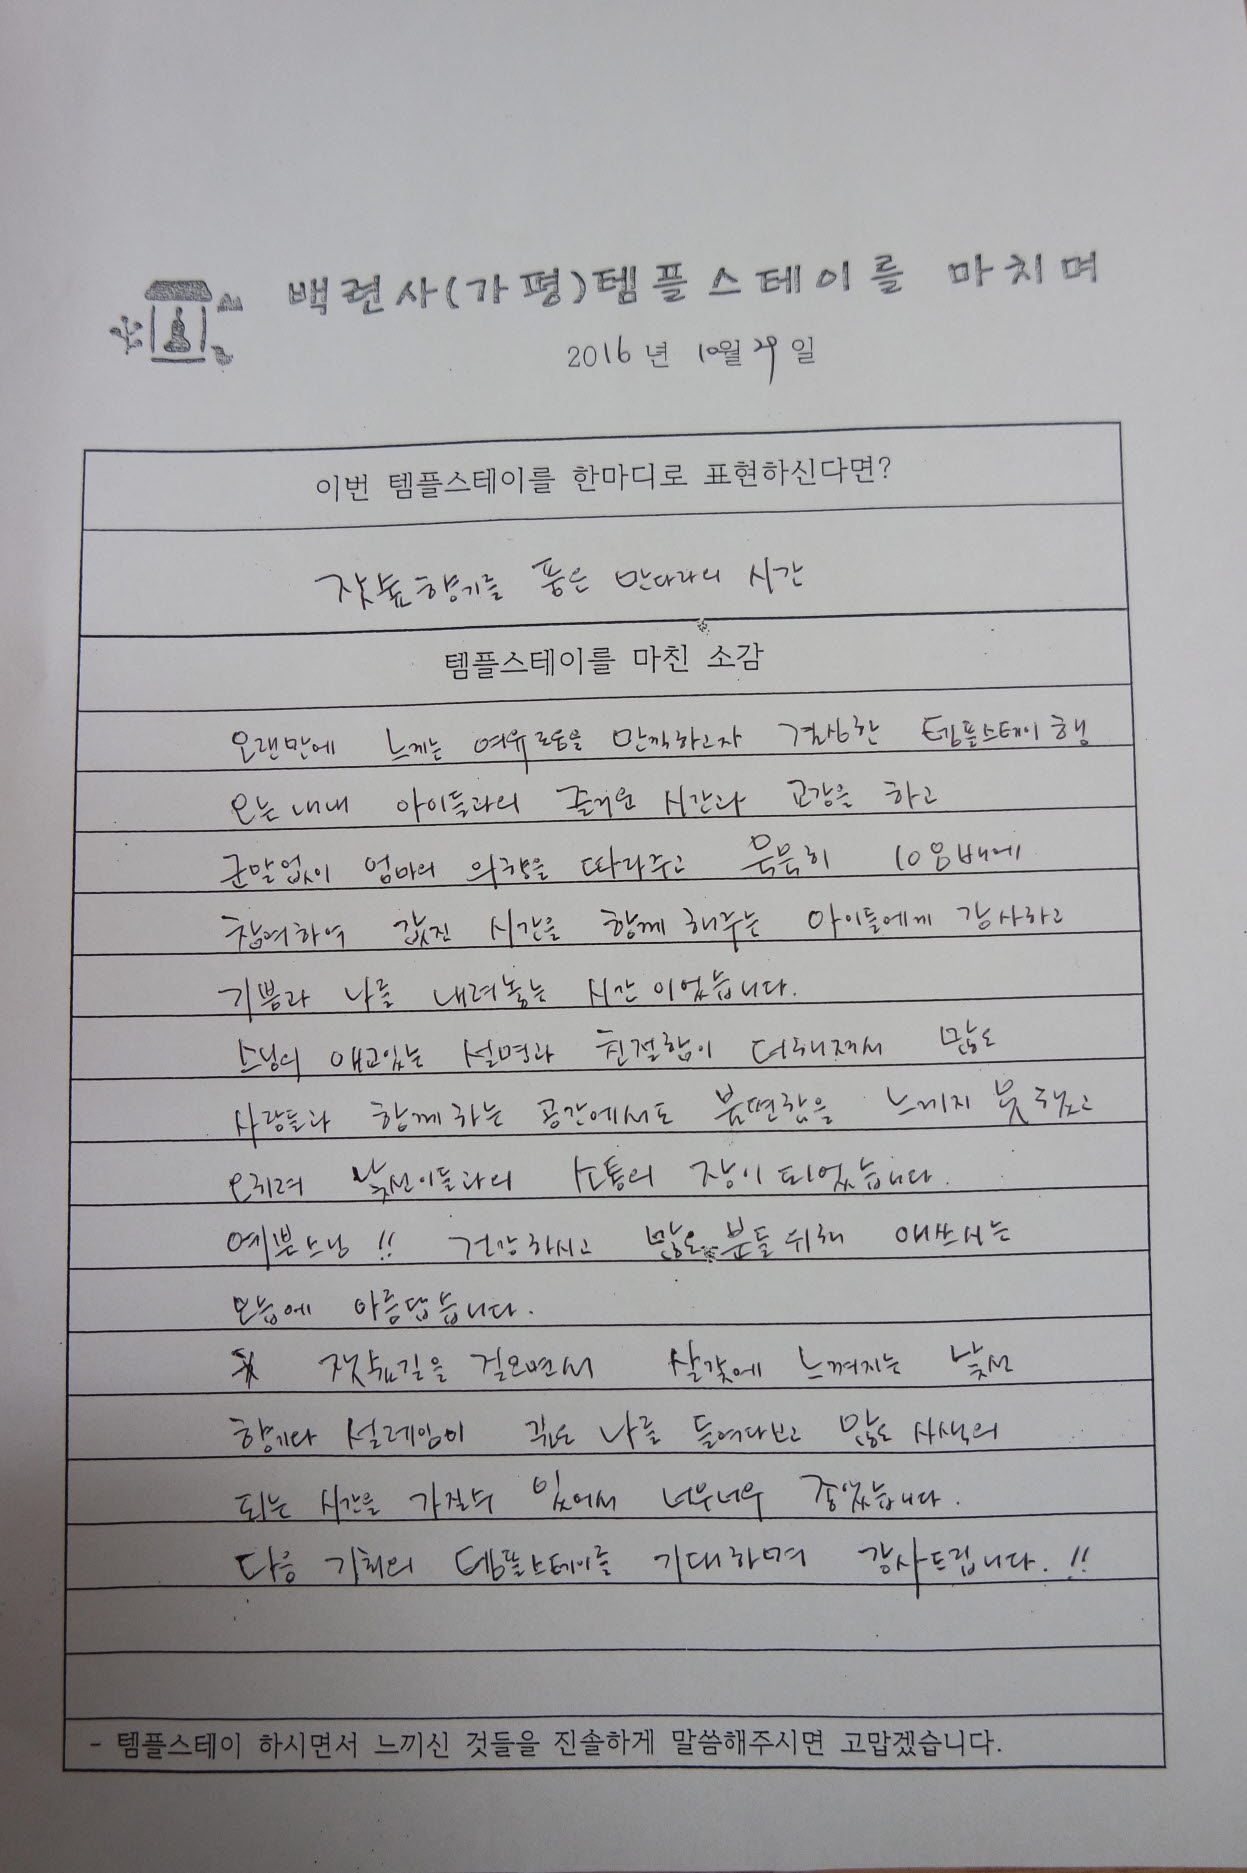 백련사(가평)템플스테이를 마치며
2016년 10월 29일
이번 템플스테이를 한마디로 표현하신다면?
잣숲향기를 품은 만다라의 시간
템플스테이를 마친 소감
오랜만에 느끼는 여유로움을 만끽하고자 결심한 템플스테이행
오는내내 아이들과의 즐거운 시간과 교감을 하고
군말없이 엄마의 의향을 따라주고 묵묵히 108배에
참여하여 값진 시간을 함께 해주는 아이들에게 감사하고
기쁨과 나를 내려놓는 시간이었습니다.
스님의 애교있는 설명과 친절함이 더해져서 많은
사람들과 함께하는 공간에서도 불편함을 느끼지 못했고
오히려 낯선이들과의 소통의 장이 되었습니다.
예쁜스님!! 건강하시고 많은 분들 위해 애쓰시는
모습에 아름답습니다.
잣숲길을 걸으면서 살갗에 느껴지는 낯선
향기와 설레임이 깊은 나를 들여다보고 많은 사색의
되는 시간을 가질수 있어서 너무너무 좋았습니다.
다음 기회의 템플스테이를 기대하며 감사드립니다.!!
- 템플스테이 하시면서 느끼신 것들을 진솔하게 말씀해주시면 고맙겠습니다.